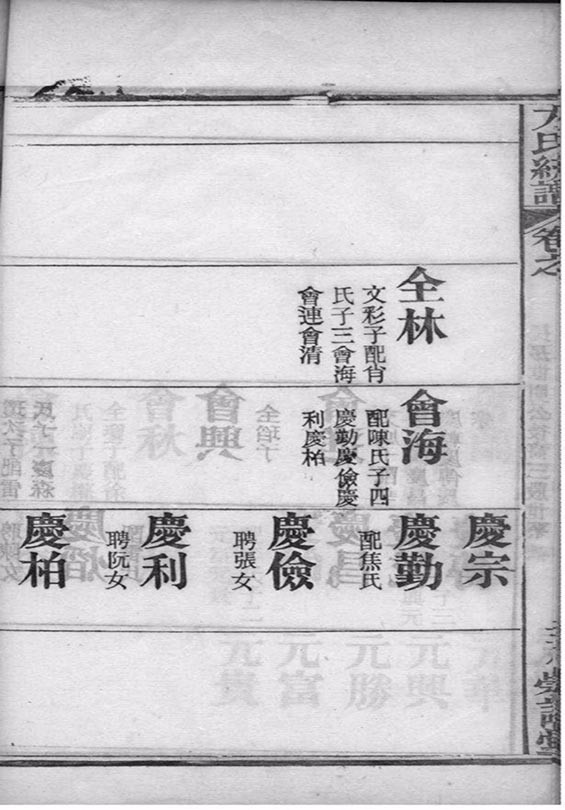 方氏統譜
卷之
全林
文彩子配肖
氏子三會海
會連會清
會海
配陳氏子四
慶勤慶儉慶
利慶柏
慶宗
慶勤
配焦氏
慶儉
聘張女
慶利
聘阮女
慶柏